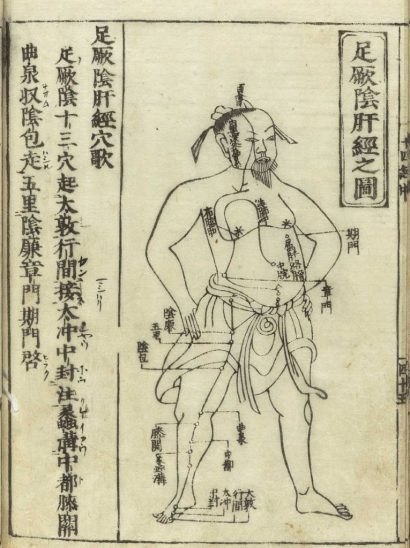 足厥陰肝經之圖
期門
章門
中脘
陰廉
五里
陰包
曲泉
膝關
中都
蠡溝
中封
太冲
行間
大敦
足厥陰肝經穴歌
足厥陰十三穴起太敦行間按太冲中封注蠡溝中都膝關
曲泉収陰包走五里陰廉章門期門啓